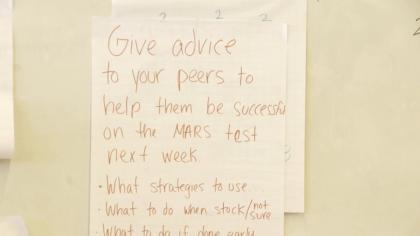 2 2 2
Give advice
to your peers to
help them be successful
on the MARS test
next week
• What strategies to use
• What to do when stock/not sure
• What to do if done early